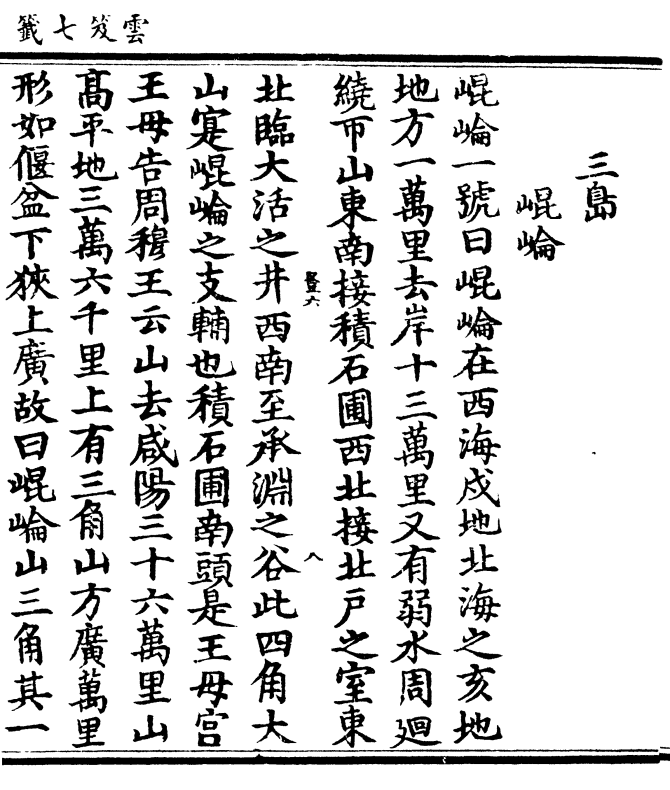 雲笈七籤
三島
崐崘
崐崘一號曰崐崘在西海戍地北海之亥地
地方一萬里去岸十三萬里又有弱水周廻
繞帀山東南接積石圃西北接北戸之室東
北臨大活之井西南至承淵之谷此四角大
山寔崐崘之支輔也積石圃南頭是王母宫
王母告周穆王云山去咸陽三十六萬里山
髙平地三萬六千里上有三角山方廣萬里
形如偃盆下狹上廣故曰崐崘山三角其一
八